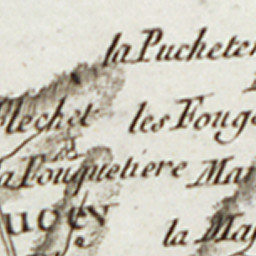 la Puchete
flechet les Foug
a Fouquetiere Mar
la Mas